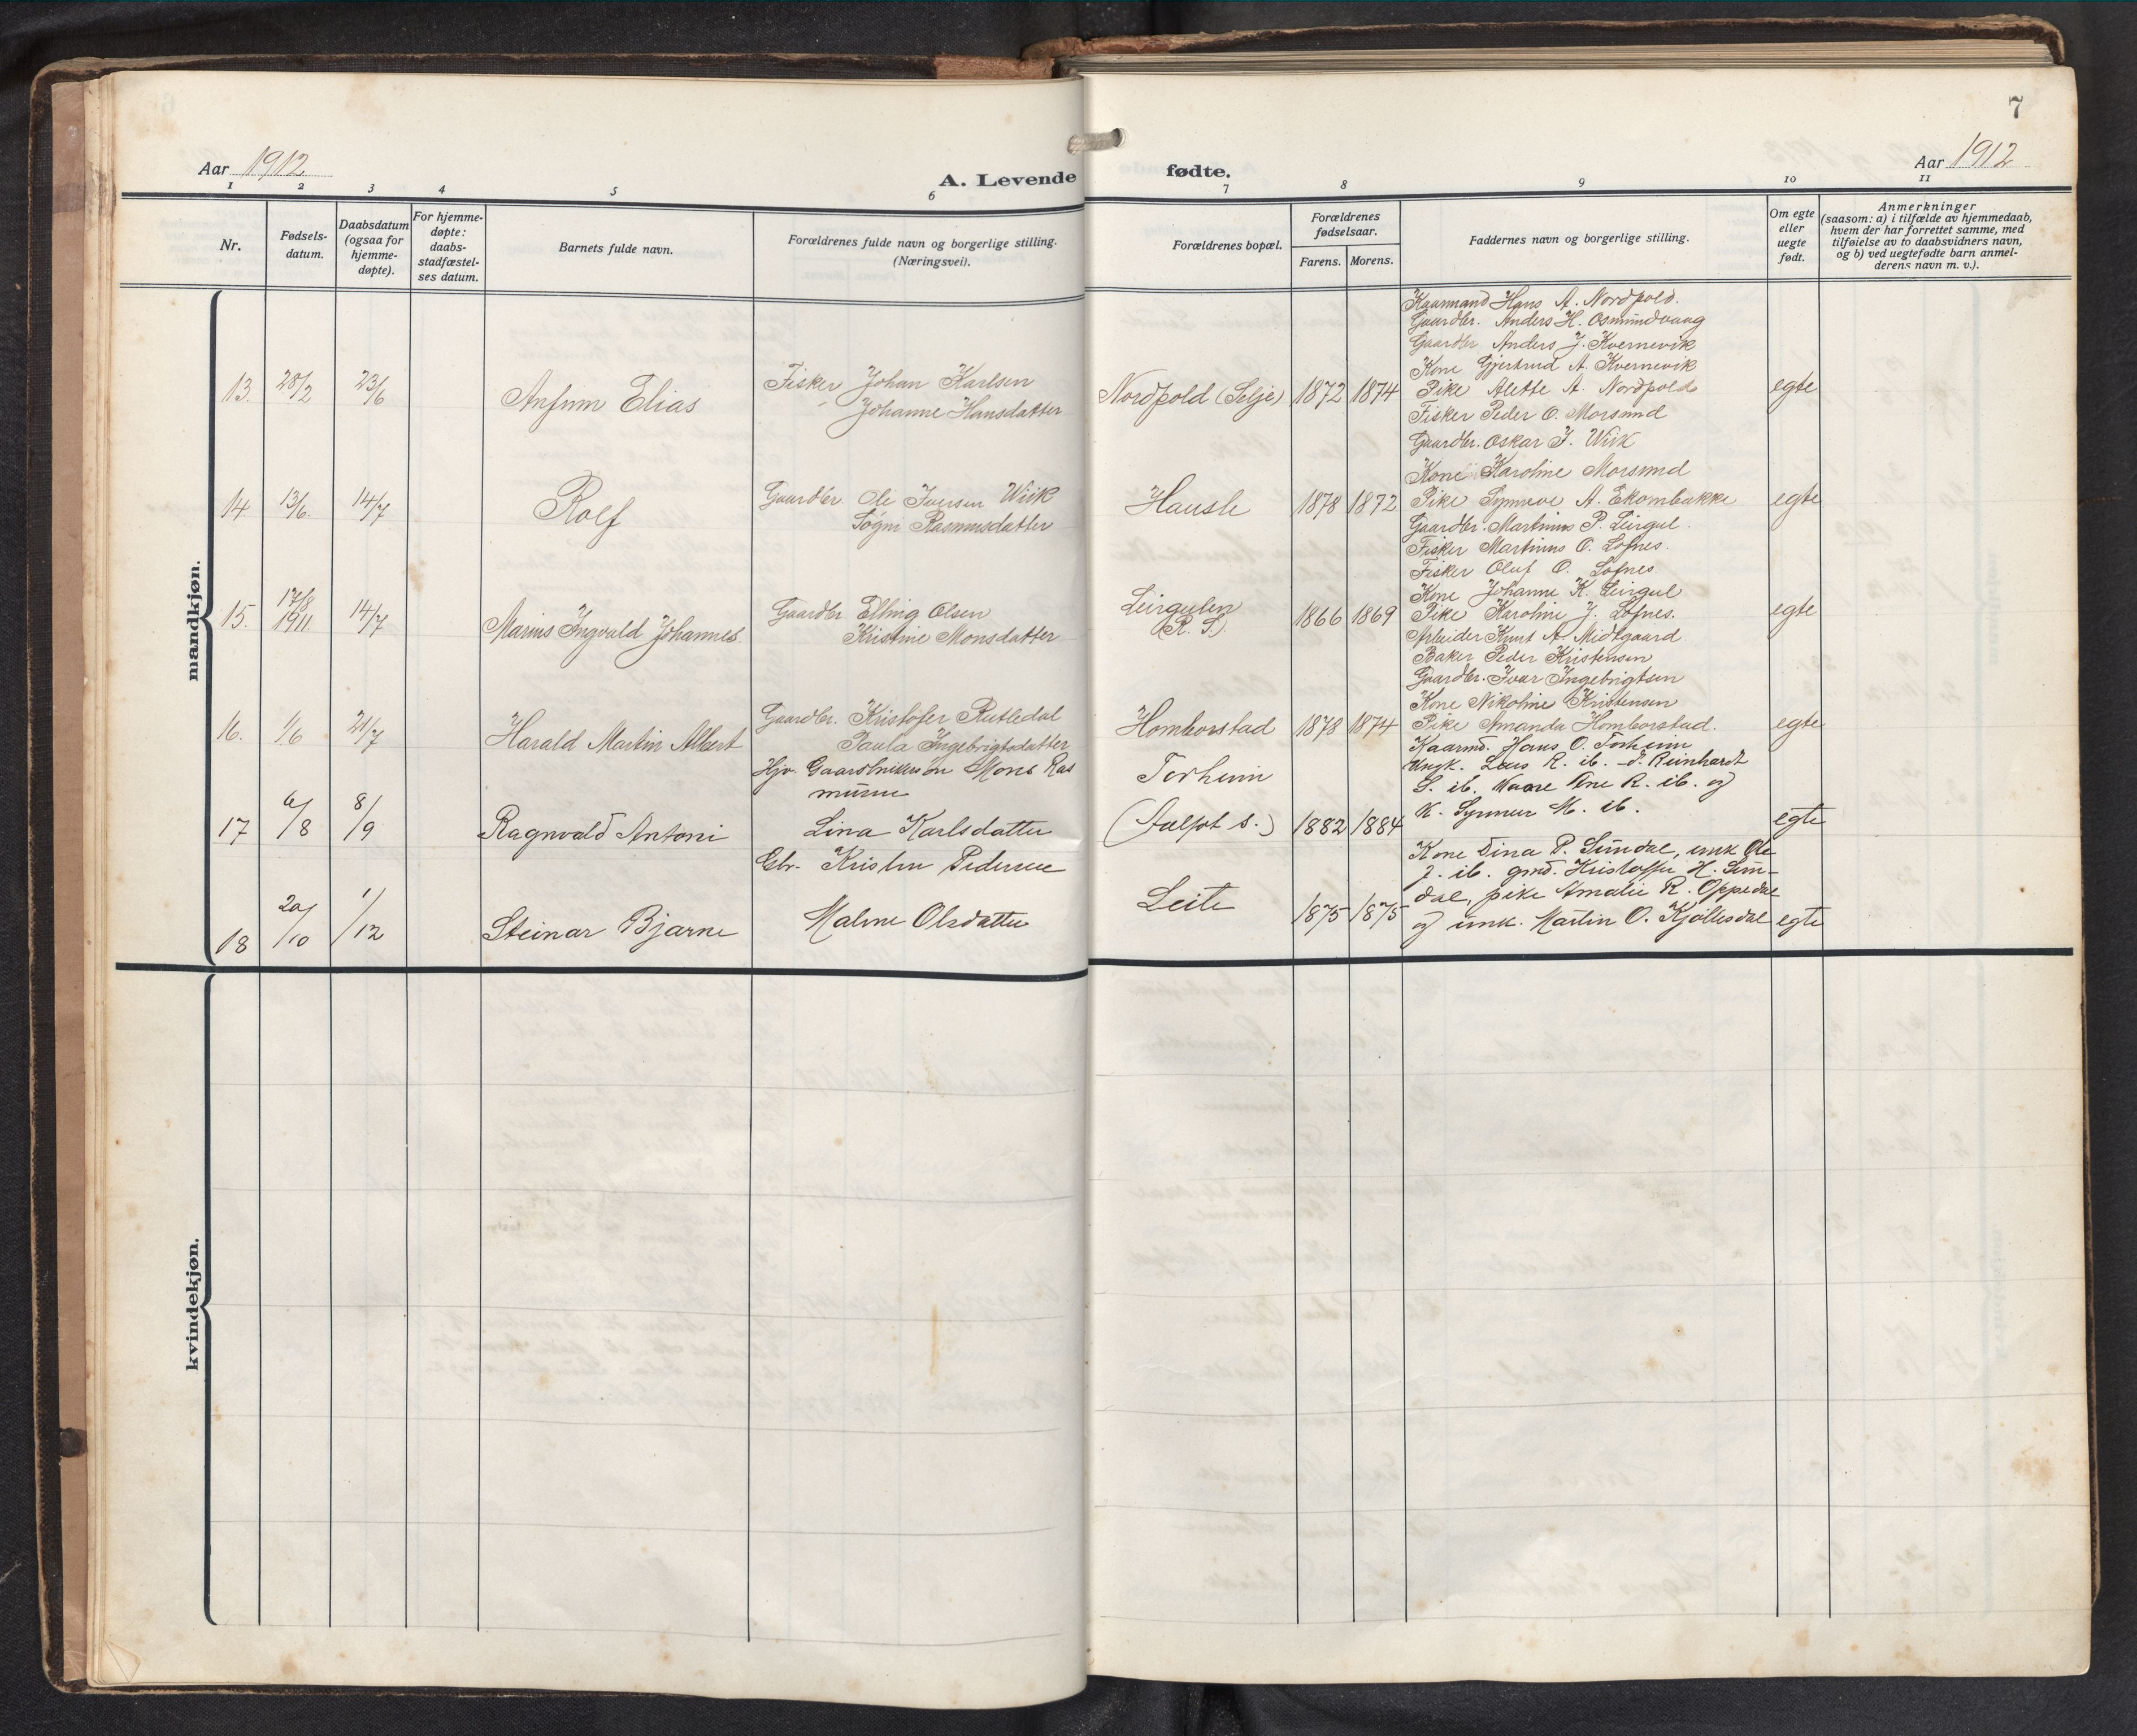 7
Aar 1912
Aar 1912
A. Levende fødte.
1 2 3 4 5 6 7 8 9 10 11
Nr.
Fødsels-
datum.
Daabsdatum
(ogsaa for
hjemme-
døpte).
For hjemme-
døpte:
daabs-
stadfæstel-
ses datum.
Barnets fulde navn.
Forældrenes fulde navn og borgerlige stilling.
(Næringsvei).
Forældrenes bopæl.
Forældrenes
fødselsaar.
Farens. Morens.
Faddernes navn og borgerlige stilling.
Om egte
eller
uegte
født.
Anmerkninger
(saasom: a) i tilfælde av hjemmedaab,
hvem der har forrettet samme, med
tilføielse av to daabsvidners navn,
og b) ved uegtefødte barn anmel-
derens navn m. v.).
mandkjøn.
13. 28/2 23/6 Elias
Fisker Johan Karlsen
Johanne Hansdatter
Nordpold (Selje) 1872 1874
Kaarmand Hans A. Nordpold.
Gaardbr. Anders H. Osmundvaag
Gaardbr Anders J. Kvernevik
Kone Gjertrud A. Kvernevik
Pike Alette A. Nordpold
egte
14 13/6. 14/7 Rolf
Gaardbr. Ole Iversen Wiik
Søgni Rasmusdatter
Hausle 1878 1872
Fisker Peder O. Morsund
Gaardbr. Oskar I. Wiik
Kone Karoline Morsund
Pike Synnøve A. Ekornbakke
egte
15. 17/8 1911. 14/7 Marius Ingvald Johannes
Gaardbr Elling Olsen
Kristine Monsdatter
Leirgulen
(R. S.)
1866 1869
Gaardbr. Martinus P. Leirgul.
Fisker Martinus O. Lofnes.
Fisker Oluf O. Lofnes
Kone Johanne K. Leirgul
Pike Karoline J. Lofnes.
egte
16. 1/6 21/7 Harald Martin Albert
Gaardbr. Kristofer Rutledal
Paula Ingebrigtsdatter
Homborstad 1878 1874
Arbeider Knut A. Midtgaard
Baker Peder Kristensen
Gaardbr. Ivar Ingebrigtsen
Kone Nikoline Kristensen
Pike Amanda Homborstad.
egte
17 6/8 8/9 Ragnvald Antoni
Mons Ras
Lina Karlsdatter
Torheim
1882 1884
Kaarmd. Hans O. Torheim
Ungk. R. ib. Reinhardt
S. ib. Ane R. ib. og
K. M. ib.
egte
18 20/10 1/12 Steinar Bjarne
Gbr. Kristen Pedersen
Malene Olsdatter
Leite 1875 1875
Kone Dina P. Simdal, unk Ole
J. ib. gmd. Kristoffer H. Sim-
dal, pike Amalie R. Oppedal
og unk. Martin O. Kjøllesdal
egte
kvindekjøn.